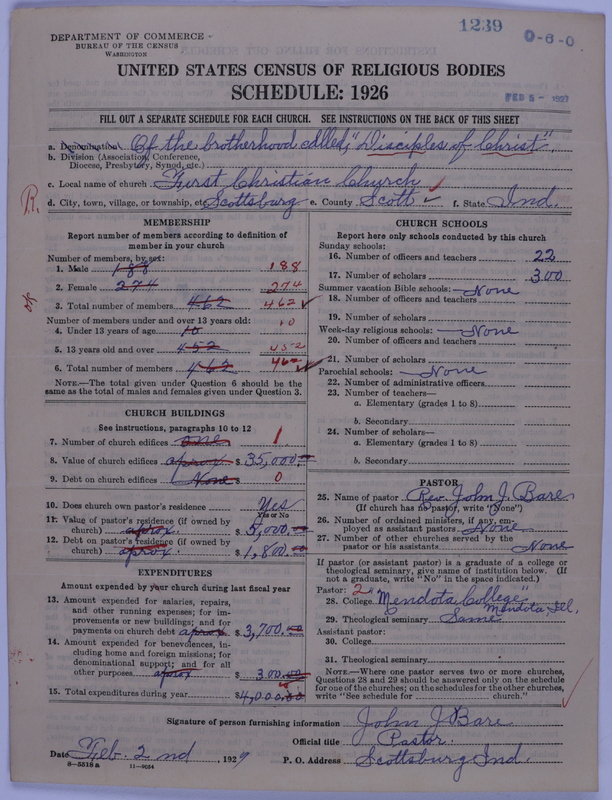 1239
0-6-0
DEPARTMENT OF COMMERCE
BUREAU OF THE CENSUS
WASHINGTON
UNITED STATES CENSUS OF RELIGIOUS BODIES
SCHEDULE: 1926
FEB 5 - 1927
FILL OUT A SEPARATE SCHEDULE FOR EACH CHURCH. SEE INSTRUCTIONS ON THE BACK OF THIS SHEET
a. Denomination Of the brotherhood called, "Disciples of Christ"
b. Division (Association, Conference,
Diocese, Presbytery, Synod, etc.)
c. Local name of church First Christian Church
d. City, town, village, or township, etc. Scottsburg e. County Scott f. State Ind.
R.
MEMBERSHIP
Report number of members according to definition of
member in your church
Number of members, by sex:
1. Male 188 188
2. Female 274 274
3. Total number of members 462 462
Number of members under and over 13 years old:
4. Under 13 years of age 10 10
5. 13 years old and over 452 452
6. Total number of members 462 462
NOTE.—The total given under Question 6 should be the
same as the total of males and females given under Question 3.
CHURCH BUILDINGS
See instructions, paragraphs 10 to 12
7. Number of church edifices one 1
8. Value of church edifices aprox $ 35,000.00
9. Debt on church edifices None $ 0
10. Does church own pastor's residence Yes
Yes or No
11. Value of pastor's residence (if owned by
church) aprox $ 5,000.00
12. Debt on pastor's residence (if owned by
church) aprox. $ 1,800.00
EXPENDITURES
Amount expended by your church during last fiscal year
13. Amount expended for salaries, repairs,
and other running expenses; for im-
provements or new buildings; and for
payments on church debt aprox $ 3,700.00
14. Amount expended for benevolences, in-
cluding home and foreign missions; for
denominational support; and for all
other purposes aprox $ 300.00
15. Total expenditures during year $4,000.00
CHURCH SCHOOLS
Report here only schools conducted by this church
Sunday schools:
16. Number of officers and teachers 22
17. Number of scholars 300
Summer vacation Bible schools: None
18. Number of officers and teachers
19. Number of scholars
Week-day religious schools: None
20. Number of officers and teachers
21. Number of scholars
Parochial schools: None
22. Number of administrative officers
23. Number of teachers—
a. Elementary (grades 1 to 8)
b. Secondary
24. Number of scholars—
a. Elementary (grades 1 to 8)
b. Secondary
PASTOR
25. Name of pastor Rev. John J. Bare
(If church has no pastor, write "None")
26. Number of ordained ministers, if any, em-
ployed as assistant pastors None
27. Number of other churches served by the
pastor or his assistants None
If pastor (or assistant pastor) is a graduate of a college or
theological seminary, give name of institution below. (If
not a graduate, write "No" in the space indicated.)
Pastor: 2
28. College "Mendota College"
Mendota Ill.
29. Theological seminary Same
Assistant pastor:
30. College
31. Theological seminary
NOTE.—Where one pastor serves two or more churches,
Questions 28 and 29 should be answered only on the schedule
for one of the churches; on the schedules for the other churches,
write "See schedule for church."
Signature of person furnishing information John J Bare
Official title Pastor.
Date Feb. 2nd, 1929 P. O. Address Scottsburg Ind.
8-5518 a 11-9034